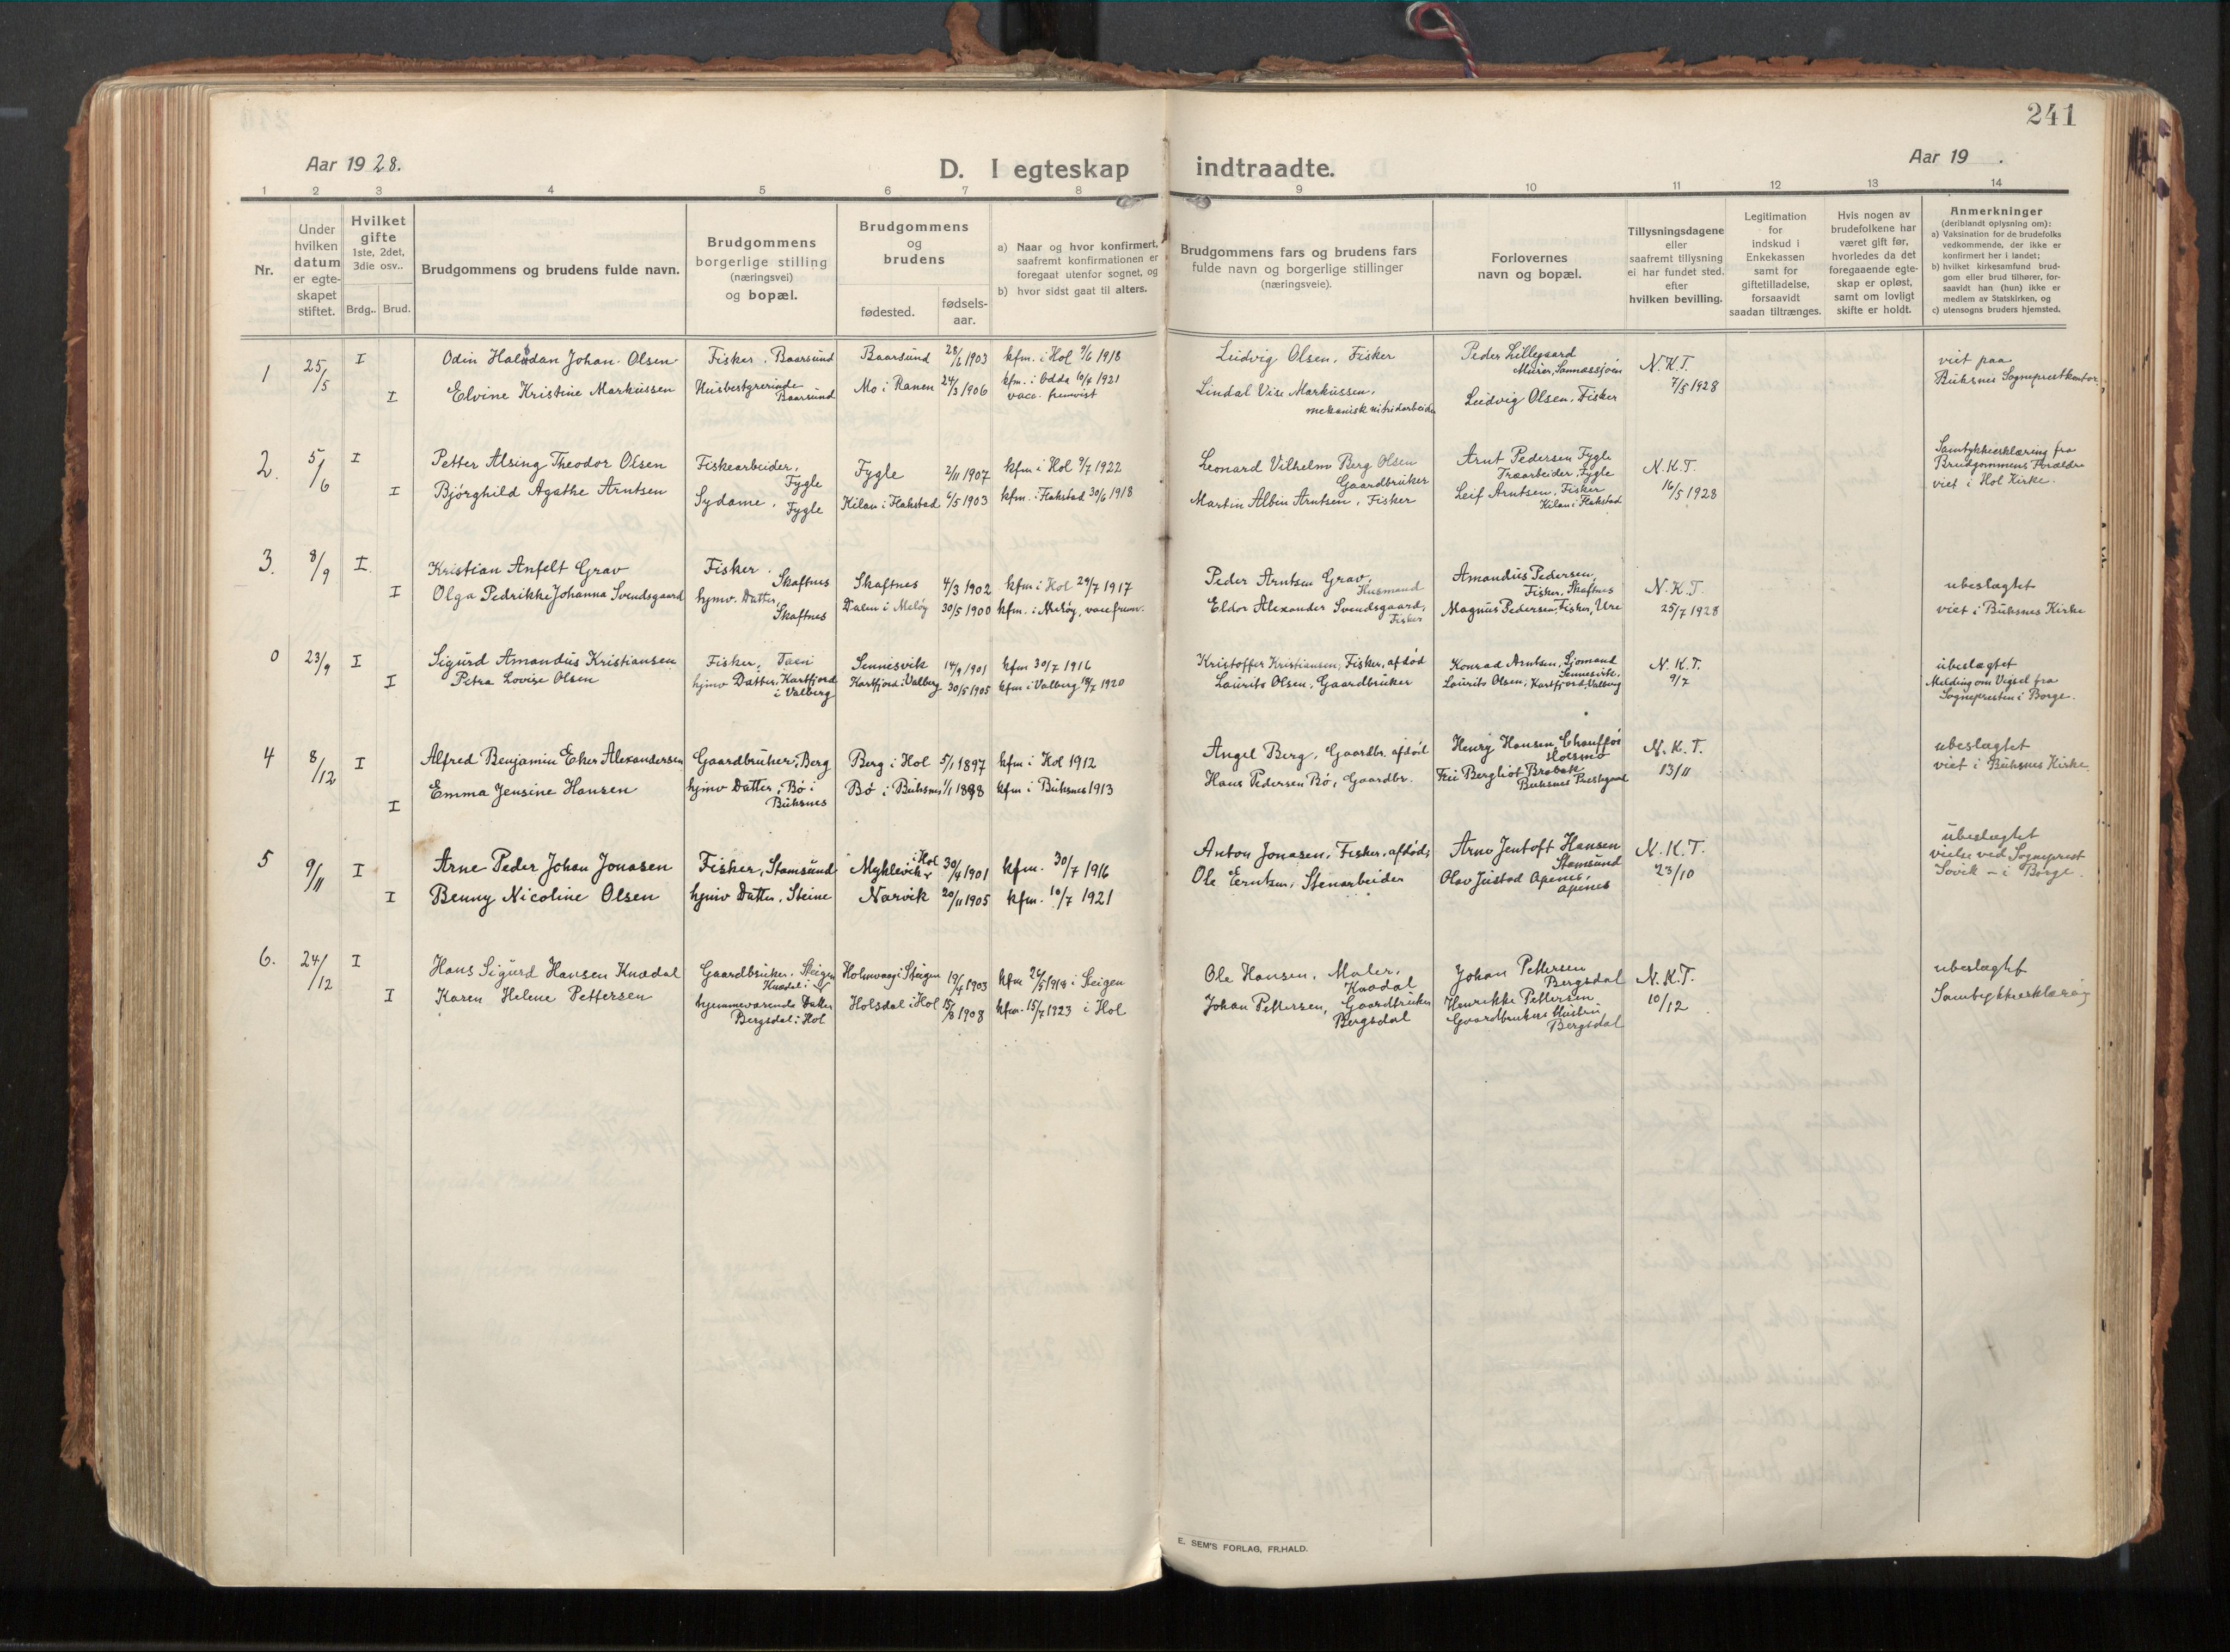 241
Aar 1928.
D. I egteskap indtraadte.
Aar 19 .
1 2 3 4 5 6 7 8 9 10 11 12 13 14
Nr.
Under hvilken datum er egteskapet stiftet.
Hvilket gifte 1ste, 2det, 3die osv..
Brdg.. Brud.
Brudgommens og brudens fulde navn.
Brudgommens borgerlige stilling (næringsvei) og bopæl.
Brudgommens og brudens
fødested.
fødsels-aar.
a) Naar og hvor konfirmert, saafremt konfirmationen er foregaat utenfor sognet, og
b) hvor sidst gaat til alters.
Brudgommens fars og brudens fars fulde navn og borgerlige stillinger (næringsveie).
Forlovernes navn og bopæl.
Tillysningsdagene eller saafremt tillysning ei har fundet sted, efter hvilken bevilling.
Legitimation for indskud i Enkekassen samt for giftetilladelse, forsaavidt saadan tiltrænges.
Hvis nogen av brudefolkene har været gift før, hvorledes da det foregaaende egteskap er opløst, samt om lovligt skifte er holdt.
Anmerkninger
(deriblandt oplysning om):
a) Vaksination for de brudefolks vedkommende, der ikke er konfirmert her i landet;
b) hvilket kirkesamfund brudgom eller brud tilhører, forsaavidt han (hun) ikke er medlem av Statskirken, og
c) utensogns bruders hjemsted.
1 25/5 I Odin Halvdan Johan Olsen Fisker. Baarsund Baarsund 28/6 1903 kfm. i Hol 9/6 1918 Ludvig Olsen, Fisker Peder Lillegaard Murer, Sannessjøen N.K.T. 7/5 1928 viet paa Buksnes Sogneprestkontor
I Elvine Kristine Markussen Husbestyrerinde Baarsund Mo i Ranen 24/3 1906 kfm. i Odda 10/4 1921 vacc. fremvist Lindal Vise Markussen, mekanisk Ludvig Olsen, Fisker
2. 5/6 I Petter Alsing Theodor Olsen Fiskearbeider, Fygle Fygle 2/11 1907 kfm i Hol 9/7 1922 Leonard Vilhelm Berg Olsen Gaardbruker Arnt Pedersen Fygle Træarbeider, Fygle N.K.T. 16/5 1928 Samtykkeerklæring fra Brudgommens Forældre viet i Hol Kirke.
I Bjørghild Agathe Arntsen Sydame, Fygle Kilan i Flakstad 6/5 1903 kfm. i Flakstad 30/6 1918 Martin Albin Arntsen, Fisker Leif Arntsen, Fisker Kilan i Flakstad
3. 8/9 I. Kristian Anfelt Grav Fisker. Skaftnes Skaftnes 4/3 1902 kfm i Hol 29/7 1917 Peder Arntsen Grav, Husmand Amandus Pedersen, Fisker, Skaftnes N.K.T. 25/7 1928 ubeslagtet viet i Buksnes Kirke
I Olga Pedrikke Johanna Svendsgaard hjmv. Datter, Skaftnes Dalen i Meløy 30/5 1900 kfm. i Meløy, vacc frem. Eldor Alexander Svendsgaard, Fisker Magnus Pedersen, Fisker, Ure
0 23/9 I Sigurd Amandus Kristiansen Fisker, Taen Sennesvik 14/9 1901 kfm 30/7 1916 Kristoffer Kristiansen, Fisker, afdød Konrad Arntsen, Sjømand Sennesvik, N.K.T. 9/7 ubeslagtet Melding om Vigsel fra Sognepresten i Borge.
I Petra Lovise Olsen hjmv Datter, Kartfjord i Valberg Kartfjord i Valberg 30/5 1905 kfm i Valberg 18/7 1920 Laurits Olsen, Gaardbruker Laurits Olsen, Kartfjord, Valberg
4 8/12 I Alfred Benjamin Eker Alexandersen Gaardbruker, Berg Berg i Hol 5/1 1897 kfm i Hol 1912 Angel Berg, Gaardbr. afdød Henry Hansen, Chauffør Holsmo N.K.T. 13/11 ubeslagtet viet i Buksnes Kirke.
I Emma Jensine Hansen hjmv Datter, Bø i Buksnes Bø i Buksnes 1/1 1898 kfm i Buksnes 1913 Hans Pedersen Bø, Gaardbr. Bergliot Buksnes Prestegaard
5 9/11 I Arne Peder Johan Jonasen Fisker, Stamsund Myklevik i Hol 30/4 1901 kfm. 30/7 1916 Anton Jonasen, Fisker, afdød, Arne Jentoft Hansen Stamsund N.K.T. 23/10 ubeslagtet vielse ved Sogneprest Sovik - i Borge.
I Benny Nicoline Olsen hjmv Datter, Steine Narvik 20/11 1905 kfm. 10/7 1921 Ole Erntsen, Stenarbeider Olav Justad Apenes, Apenes
6. 24/12 I Hans Sigurd Hansen Knædal Gaardbruker. Steigen Knædal i Holmvaag i Steigen 19/4 1903 kfm 26/5 1918 i Steigen Ole Hansen, Maler, Knædal Johan Pettersen Bergsdal N.K.T. 10/12 ubeslagtet Samtykkeerklæring
I Karen Helene Pettersen hjemmeværende Datter Bergsdal i Hol Holsdal i Hol 15/8 1908 kfm. 15/7 1923 i Hol Johan Pettersen, Gaardbruker Bergsdal Henrikke Pettersen Gaardbrukers Hustru Bergsdal
E. SEM'S FORLAG, FR.HALD.